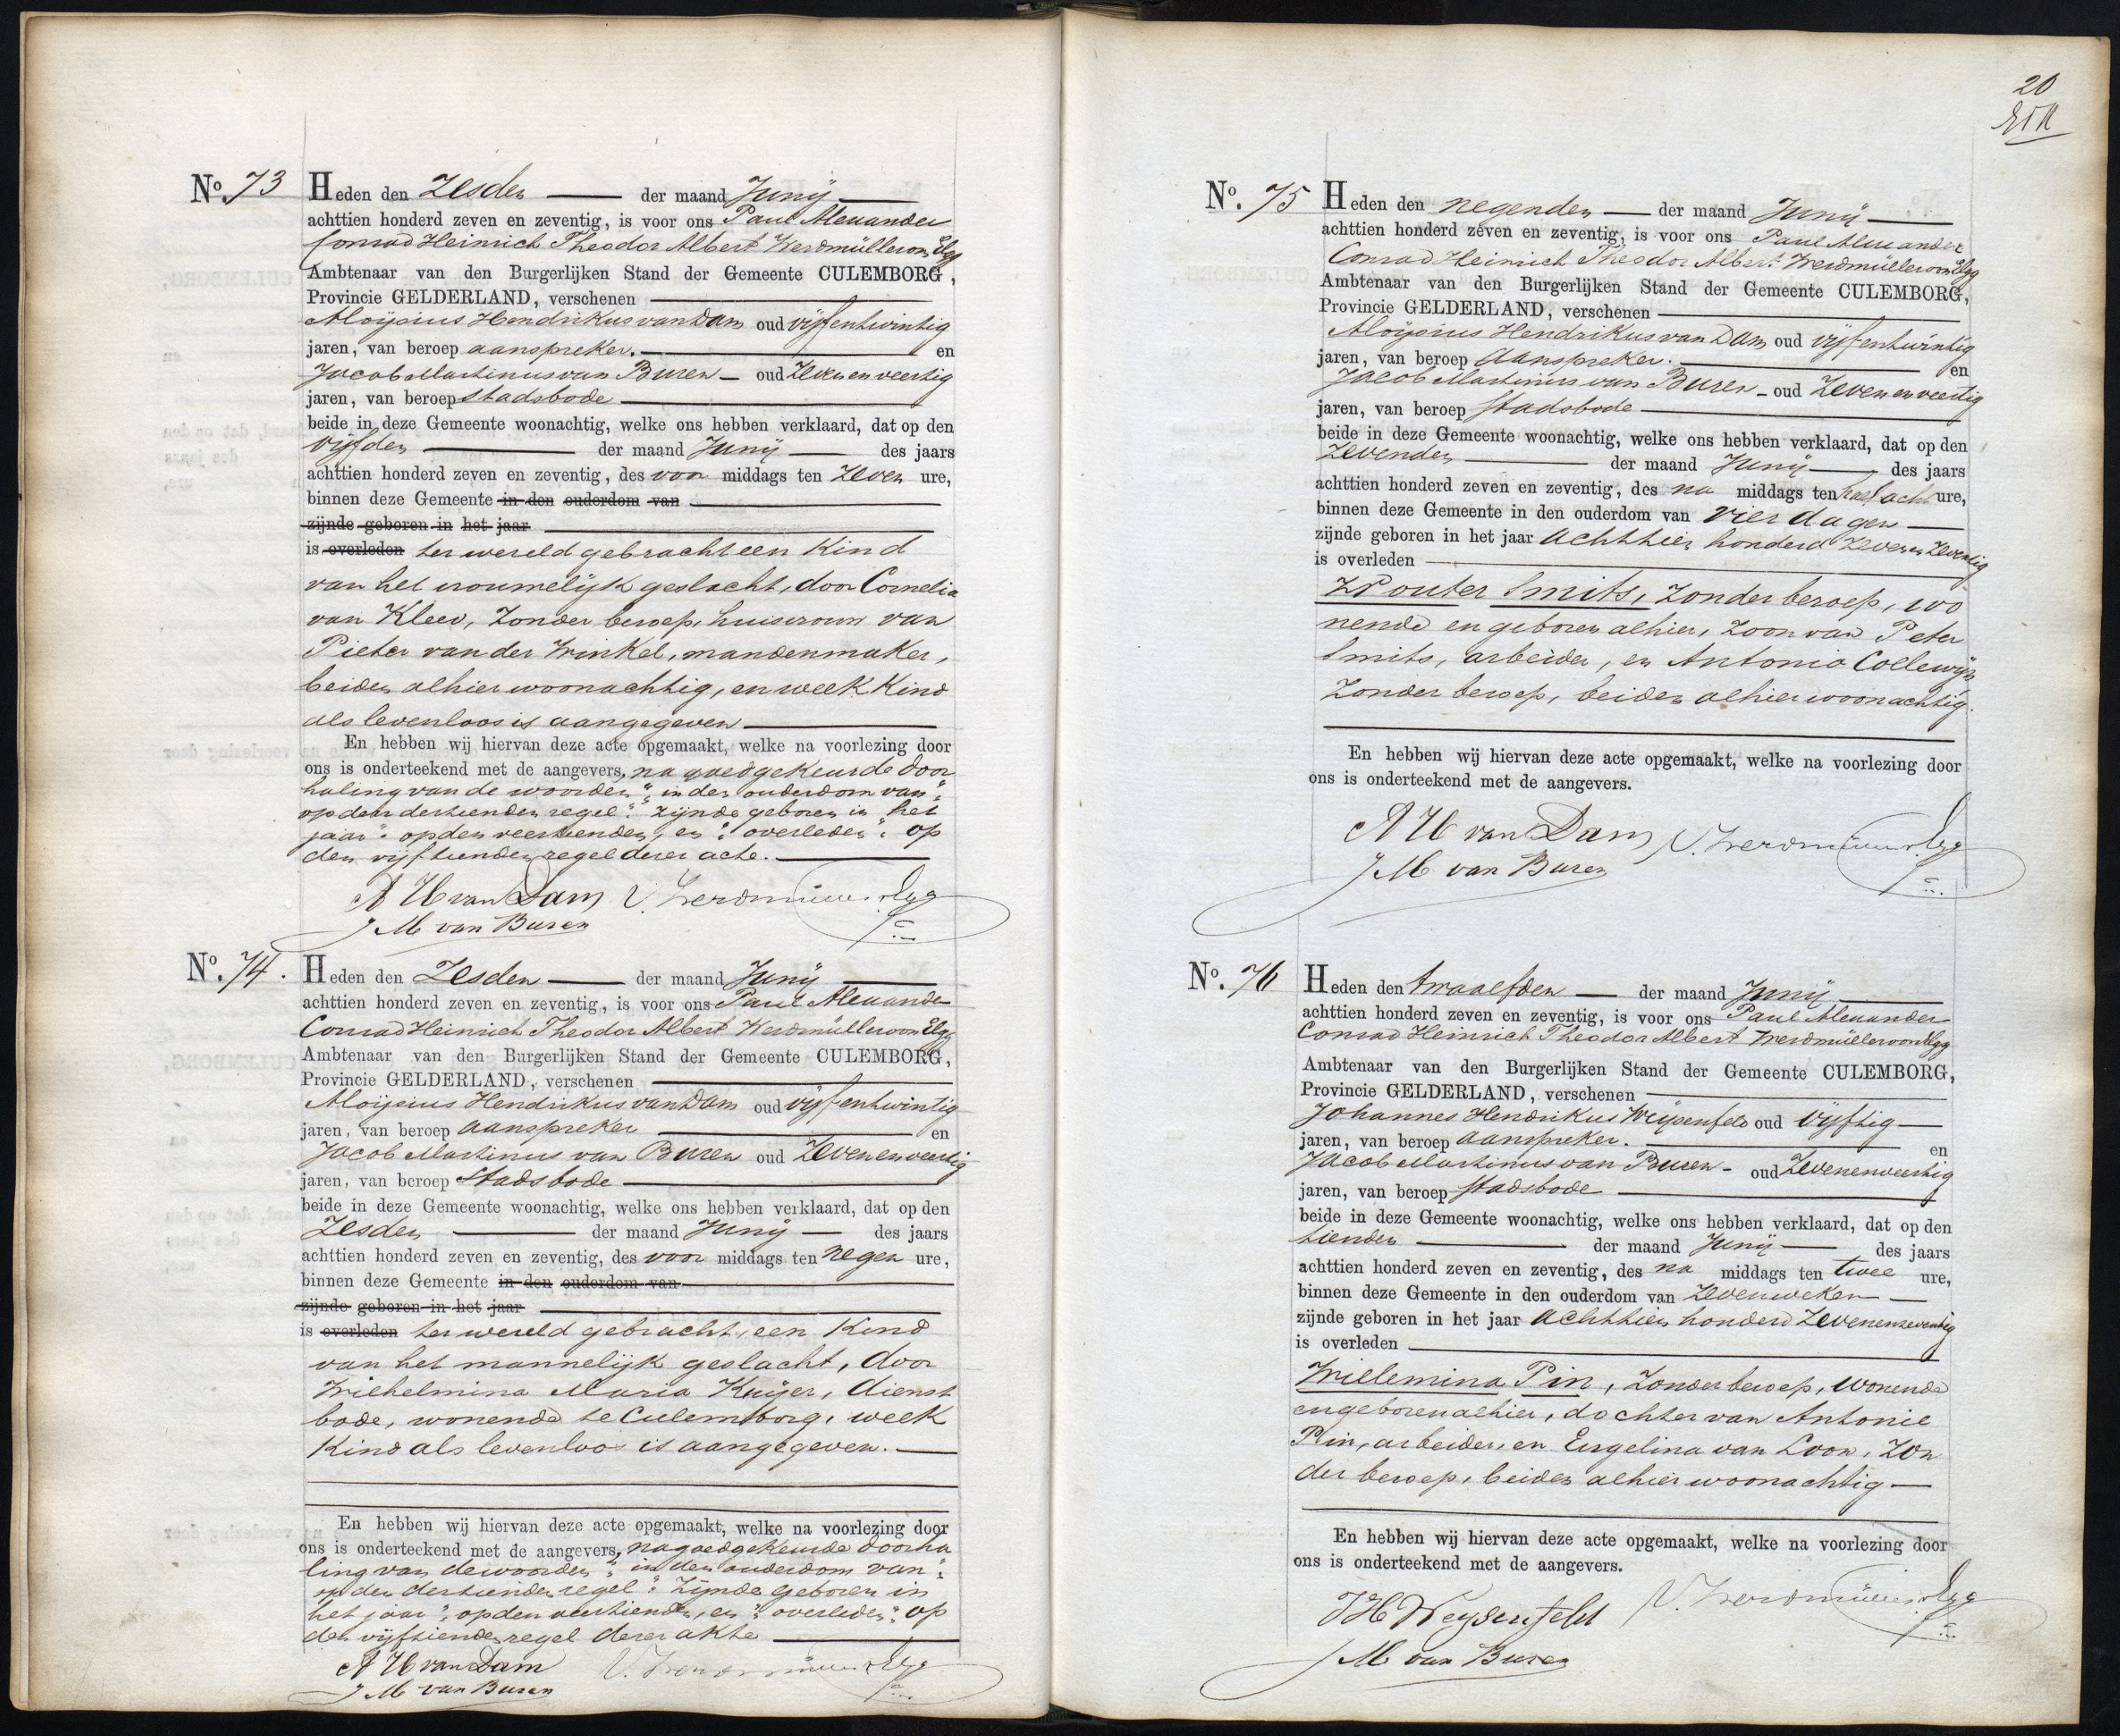 No. 73
Heden den Zesden der maand Junij
achttien honderd zeven en zeventig, is voor ons Paul Alexander
Conrad Heinrich Theodor Albert Werdmüller von Elgg
Ambtenaar van den Burgerlijken Stand der Gemeente CULEMBORG,
Provincie GELDERLAND, verschenen
Aloijsius Hendrikus van Dam oud vijfentwintig
jaren, van beroep aanspreker. en
Jacob Martinus van Buren oud Zevenenveertig
jaren, van beroep Stadsbode
beide in deze Gemeente woonachtig, welke ons hebben verklaard, dat op den
vijfden der maand Junij des jaars
achttien honderd zeven en zeventig, des voor middags ten Zeven ure,
binnen deze Gemeente in den ouderdom van
zijnde geboren in het jaar
is overleden ter wereld gebracht een Kind
van het vrouwelijk geslacht, door Cornelia
van Kleev, Zonder beroep, huisvrouw van
Pieter van der Winkel, mandenmaker,
beiden alhier woonachtig, en welk Kind
als levenloos is aangegeven
En hebben wij hiervan deze acte opgemaakt, welke na voorlezing door
ons is onderteekend met de aangevers, na goedgekeurde door
haling van de woorden "in den ouderdom van"
op den dertienden regel "zijnde geboren in het
jaar" op den veertienden, en "overleden" op
den vijftienden regel dezer acte.
A H van Dam V. Werdmüller v. Elgg
J M van Buren
No. 74.
Heden den Zesden der maand Junij
achttien honderd zeven en zeventig, is voor ons Paul Alexander
Conrad Heinrich Theodor Albert Werdmüller von Elgg
Ambtenaar van den Burgerlijken Stand der Gemeente CULEMBORG,
Provincie GELDERLAND, verschenen
Aloijsius Hendrikus van Dam oud vijfentwintig
jaren, van beroep aanspreker en
Jacob Martinus van Buren oud Zevenenveertig
jaren, van beroep Stadsbode
beide in deze Gemeente woonachtig, welke ons hebben verklaard, dat op den
Zesden der maand Junij des jaars
achttien honderd zeven en zeventig, des voor middags ten negen ure,
binnen deze Gemeente in den ouderdom van
zijnde geboren in het jaar
is overleden ter wereld gebracht, een Kind
van het mannelijk geslacht, door
Wilhelmina Maria Kuijer, dienst
bode, wonende te Culemborg, welk
Kind als levenloos is aangegeven.
En hebben wij hiervan deze acte opgemaakt, welke na voorlezing door
ons is onderteekend met de aangevers, na goedgekeurde doorha
ling van de woorden "in den ouderdom van"
op den dertienden regel "Zijnde geboren in
het jaar", op den veertienden, en "overleden" op
den vijftienden regel dezer akte
A H van Dam V. Werdmüller v. Elgg
J M van Buren
20
No. 75
Heden den negenden der maand Junij
achttien honderd zeven en zeventig, is voor ons Paul Alexander
Conrad Heinrich Theodor Albert Werdmüller von Elgg
Ambtenaar van den Burgerlijken Stand der Gemeente CULEMBORG,
Provincie GELDERLAND, verschenen
Aloijsius Hendrikus van Dam oud vijfentwintig
jaren, van beroep Aanspreker. en
Jacob Martinus van Buren oud Zevenenveertig
jaren, van beroep Stadsbode
beide in deze Gemeente woonachtig, welke ons hebben verklaard, dat op den
Zevenden der maand Junij des jaars
achttien honderd zeven en zeventig, des na middags ten half acht ure,
binnen deze Gemeente in den ouderdom van vier dagen
zijnde geboren in het jaar achttien honderd Zeven en Zeventig
is overleden
Wouter Smits, Zonder beroep, wo
nende en geboren alhier, Zoon van Peter
Smits, arbeider, en Antonia Collewijn
Zonder beroep, beiden alhier woonachtig.
En hebben wij hiervan deze acte opgemaakt, welke na voorlezing door
ons is onderteekend met de aangevers.
A H van Dam V. Werdmüller v. Elgg
J M van Buren
No. 76
Heden den twaalfden der maand Junij
achttien honderd zeven en zeventig, is voor ons Paul Alexander
Conrad Heinrich Theodor Albert Werdmüller von Elgg
Ambtenaar van den Burgerlijken Stand der Gemeente CULEMBORG,
Provincie GELDERLAND, verschenen
Johannes Hendrikus Weijsenfeld oud vijftig
jaren, van beroep aanspreker. en
Jacob Martinus van Buren oud Zevenenveertig
jaren, van beroep Stadsbode
beide in deze Gemeente woonachtig, welke ons hebben verklaard, dat op den
tienden der maand Junij des jaars
achttien honderd zeven en zeventig, des na middags ten twee ure,
binnen deze Gemeente in den ouderdom van Zeven weken
zijnde geboren in het jaar achttien honderd Zevenenzeventig
is overleden
Willemina Pin, Zonder beroep, wonende
en geboren alhier, dochter van Antonie
Pin, arbeider, en Engelina van Loon, Zon
der beroep, beiden alhier woonachtig
En hebben wij hiervan deze acte opgemaakt, welke na voorlezing door
ons is onderteekend met de aangevers.
JH Weysenfeld V. Werdmüller v. Elgg
J M van Buren